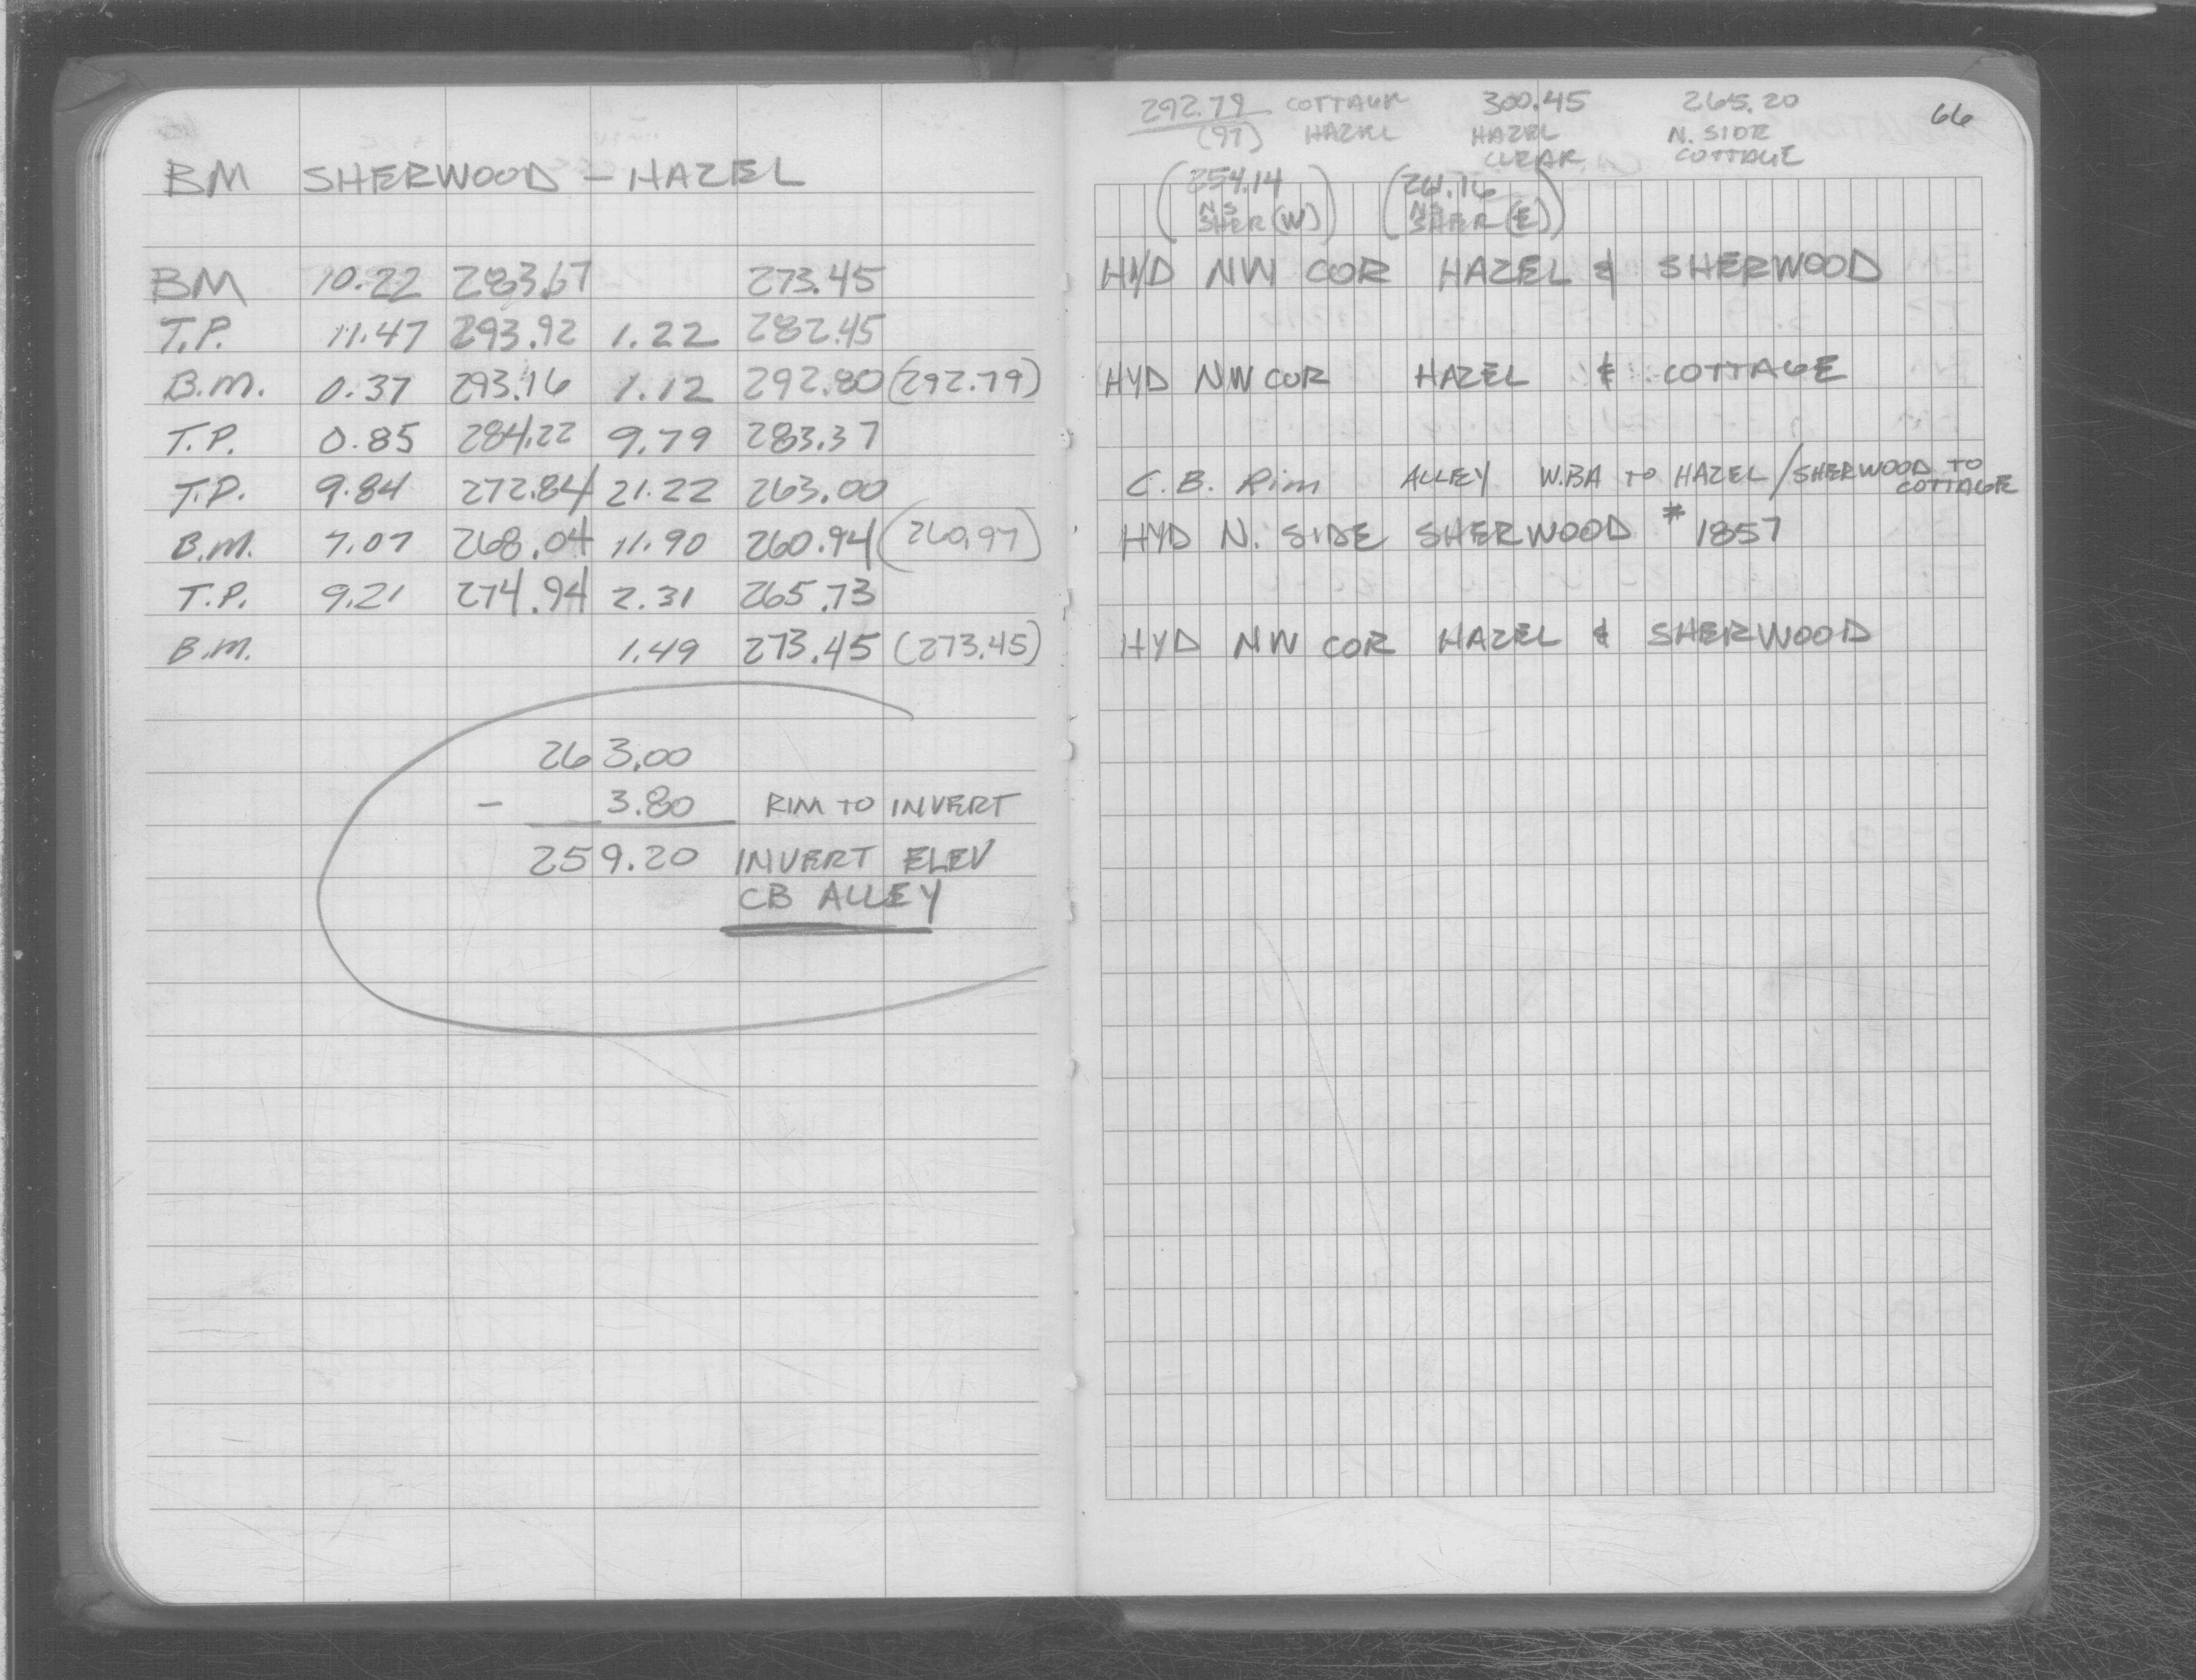 BM SHERWOOD - HAZEL
BM 10.22 283.67 273.45
T.P. 11.47 293.92 1.22 282.45
B.M. 0.37 293.16 1.12 292.80 (292.79)
T.P. 0.85 284.22 9.79 283.37
T.P. 9.84 272.84 21.22 263.00
B.M. 7.07 268.04 11.90 260.94 (260.97)
T.P. 9.21 274.94 2.31 265.73
B.M. 1.49 273.45 (273.45)
263.00
- 3.80 RIM TO INVERT
259.20 INVERT ELEV
CB ALLEY
66
292.79 COTTAGE 300.45 265.20
(97) HAZEL HAZEL N. SIDE
CEDAR COTTAGE
(254.14) (261.16)
NS NS
SHER (W) SHER (E)
HYD NW COR HAZEL & SHERWOOD
HYD NW COR HAZEL & COTTAGE
C.B. Rim ALLEY W.BA TO HAZEL/SHERWOOD TO
COTTAGE
HYD N. SIDE SHERWOOD #1857
HYD NW COR HAZEL & SHERWOOD